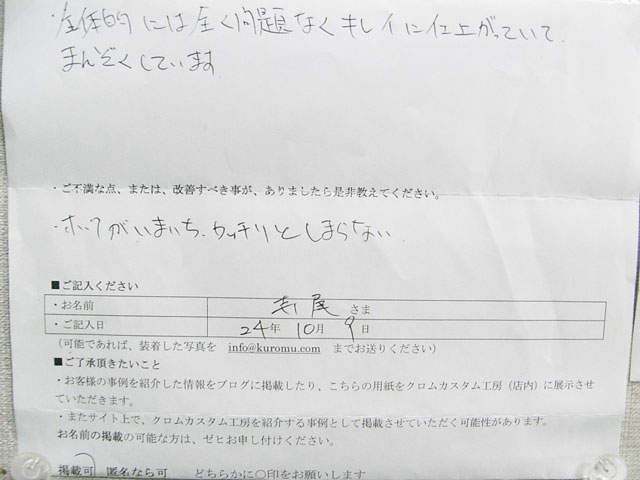 ・全体的には全く問題なくキレイに仕上がっていて
まんぞくしています
・ご不満な点、または、改善すべき事が、ありましたら是非教えてください。
・ホックがいまいち、カッチリとしまらない
■ご記入ください
・お名前 尾 さま
・ご記入日 24年 10月 9日
(可能であれば、装着した写真を info@kuromu.com までお送りください)
■ご了承頂きたいこと
・お客様の事例を紹介した情報をブログに掲載したり、こちらの用紙をクロムカスタム工房（店内）に展示させ
ていただきます。
・またサイト上で、クロムカスタム工房を紹介する事例として掲載させていただく可能性があります。
お名前の掲載の可能な方は、ゼヒお申し付けください。
掲載可 匿名なら可 どちらかに○印をお願いします